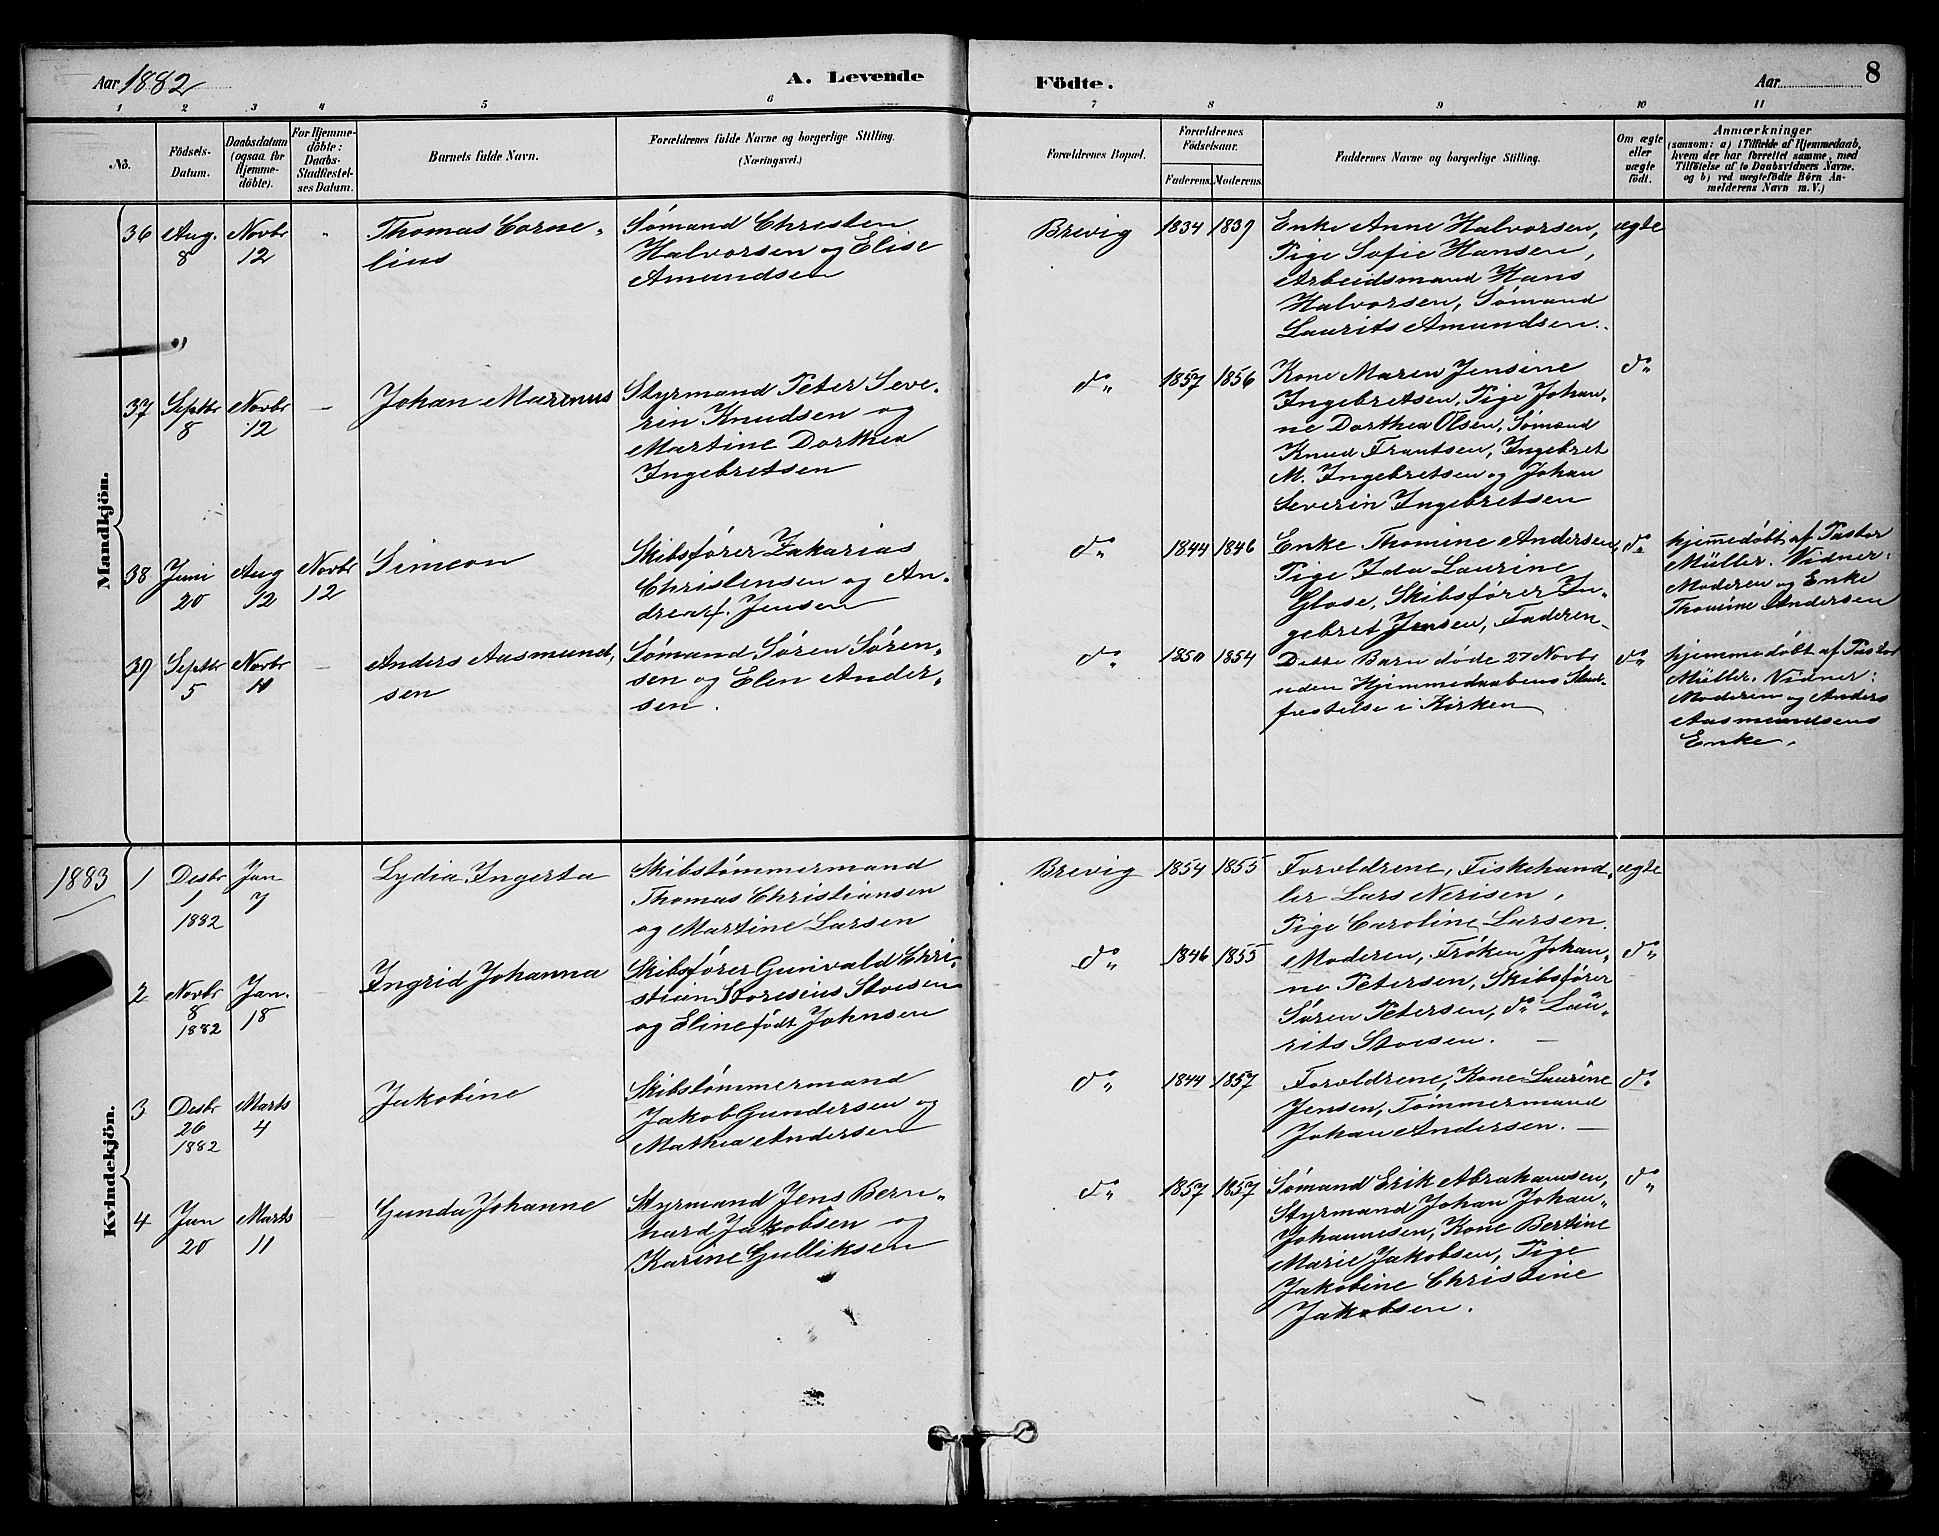 Aar 1882
A. Levende
Födte.
Aar
8
1 2 3 4 5 6 7 8 9 10 11
No.
Födsels-
Datum.
Daabsdatum
(ogsaa for
Hjemme-
döbte).
For Hjemme-
döbte:
Daabs-
Stadfæstel-
ses Datum.
Barnets fulde Navn.
Forældrenes fulde Navne og borgerlige Stilling.
(Næringsvei.)
Forældrenes Bopæl.
Forældrenes
Födselsaar.
Faderens. Moderens.
Faddernes Navne og borgerlige Stilling.
Om ægte
eller
uægte
födt.
Anmærkninger
(saasom: a) i Tilfælde af Hjemmedaab,
hvem der har forrettet samme, med
Tilföielse af to Daabsvidners Navne,
og b) ved uægtefödte Börn An-
melderens Navn m. V.)
Mandkjön.
36
Aug.
8
Novbr
12
"
Thomas Corne-
lius
Sømand Christen
Halvorsen og Elise
Amundsen
Brevig
1834
1839
Enke Anne Halvorsen,
Pige Sofie Hansen,
Arbeidsmand Hans
Halvorsen, Sømand
Laurits Amundsen.
ægte
37
Septbr
8
Novbr
12
Johan Marinus
Styrmand Peter Seve-
rin Knudsen og
Martine Dorthea
Ingebretsen
do
1857
1856
Kone Maren Jensine
Ingebretsen, Pige Johan-
ne Dorthea Olsen, Sømand
Knud Frantsen, Ingebret
M. Ingebretsen og Johan
Severin Ingebretsen
do
38
Juni
20
Aug
12
Novbr
12
Simeon
Skibsfører Zakarias
Christensen og An-
drea f. Jensen
do
1844
1846
Enke Thomine Andersen,
Pige Ida Laurine
Glose, Skibsfører In-
gebret Jensen, Faderen
do
hjemmedøbt af Pastor
Müller. Vidner:
Moderen og Enke
Thomine Andersen
39
Septbr
5
Novbr
11
Anders Aasmund-
sen
Sømand Søren Søren-
sen og Elen Ander-
sen.
do
1850
1854
Dette Barn døde 27 Novbr
uden Hjemmedaabens Stad-
fæstelse i Kirken
do
hjemmedøbt af Pastor
Müller. Vidner:
Moderen og Anders
Aasmundsens
Enke.
1883
Kvindekjön.
1
Desbr
1
1882
Jan
7
Lydia Ingerta
Skibstømmermand
Thomas Christiansen
og Martine Larsen
Brevig
1854
1855
Forældrene, Fiskehand-
ler Lars Nerisen,
Pige Caroline Larsen.
ægte
2
Novbr
8
1882
Jan.
18
Ingrid Johanna
Skibsfører Gunvald Chri-
stian Storesius Stoesen
og Eline født Johnsen
do
1846
1855
Moderen, Frøken Johan-
ne Petersen, Skibsfører
Søren Petersen, do Lau-
rits Stoesen.
do
3
Desbr
26
1882
Marts
4
Jakobine
Skibstømmermand
Jakob Gundersen og
Mathea Andersen
do
1844
1857
Forældrene, Kone Laurine
Jensen, Tømmermand
Johan Andersen.
do
4
Jan
20
Marts
11
Gunda Johanne
Styrmand Jens Bern-
hard Jakobsen og
Karine Gulliksen
do
1857
1857
Sømand Erik Abrahamsen,
Styrmand Johan Johan-
Johannesen, Kone Bertine
Marie Jakobsen, Pige
Jakobine Christine
Jakobsen.
do